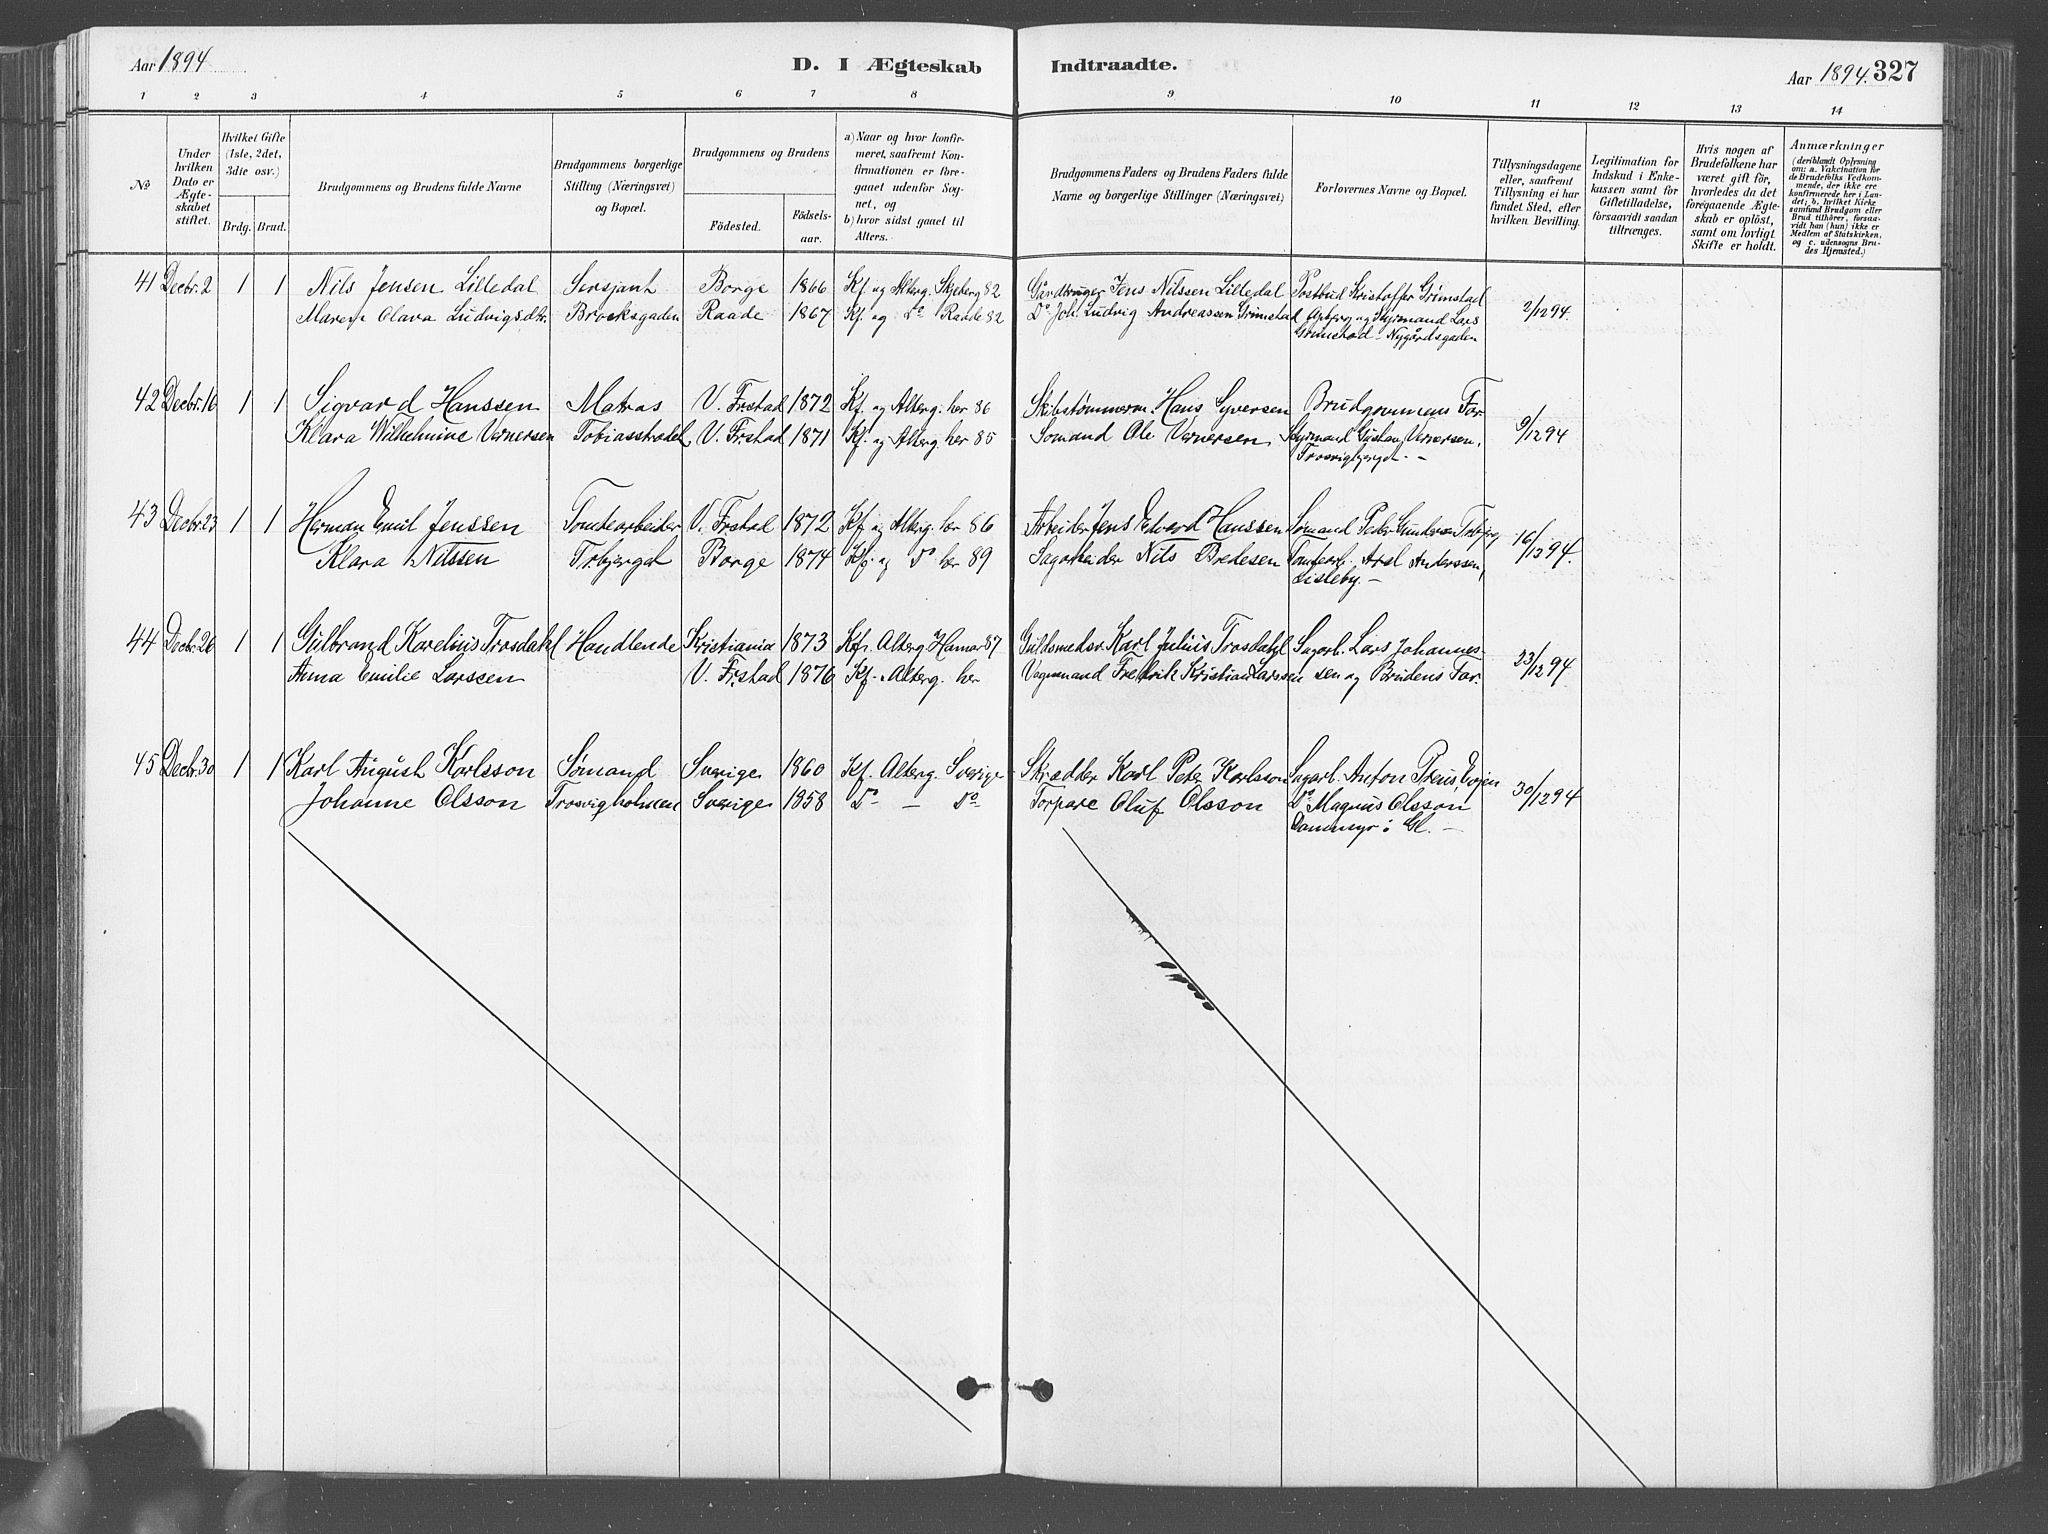 Aar 1894
D. I Ægteskab Indtraadte.
Aar 1894. 327
1 2 3 4 5 6 7 8 9 10 11 12 13 14
No
Under hvilken Dato er Ægteskabet stiftet.
Hvilket Gifte (1ste, 2det, 3die osv.)
Brdg. Brud.
Brudgommens og Brudens fulde Navne
Brudgommens borgerlige Stilling (Næringsvei) og Bopæl.
Brudgommens og Brudens
Födested.
Födselsaar.
a) Naar og hvor konfirmeret, saafremt Konfirmationen er foregaaet udenfor Sognet, og
b) hvor sidst gaaet til Alters.
Brudgommens Faders og Brudens Faders fulde Navne og borgerlige Stillinger (Næringsvei)
Forlovernes Navne og Bopæl.
Tillysningsdagene eller, saafremt Tillysning ei har fundet Sted, efter hvilken Bevilling.
Legitimation for Indskud i Enkekassen samt for Giftetilladelse, forsaavidt saadan tiltrænges.
Hvis nogen af Brudefolkene har været gift för, hvorledes da det foregaaende Ægteskab er oplöst, samt om lovligt Skifte er holdt.
Anmærkninger
(deriblandt Oplysning om: a. Vakcination for de Brudefolks Vedkommende, der ikke ere konfirmerede her i Landet; b. hvilket Kirkesamfund Brudgom eller Brud tilhörer, forsaavidt han (hun) ikke er Medlem af Statskirken, og c. udensogns Brudes Hjemsted.)
41 Decbr. 2 1 1 Nils Jensen Lilledal Sersjant Borge 1866 Kf. og Alterg. Skjeberg 82 Gårdbruger Jens Nilssen Lilledal Postbud Kristoffer Grimstad
Maren Olava Ludvigsdtr. Brocksgaden Raade 1867 Kf. og Do Raade 82 Do Joh. Ludvig Andreassen Grimstad og Styrmand Lars 2/12 94.
Grimstad Nygårdsgaden
42 Decbr. 16 1 1 Sigvard Hanssen Matros V. Frstad 1872 Kf. og Alterg. her 86 Skibstømmerm. Hans Syversen Brudgommens Far
Klara Wilhelmine Vernersen Tobiasstrædet V. Frstad 1871 Kf. og Alterg. her 85 Sømand Ole Vernersen. Styrmand Gustav Vernersen, 9/12 94
Trosvigbjerget. -
43 Decbr. 23 1 1 Herman Emil Jenssen Tomtearbeider V. Frstad 1872 Kf. og Alterg. her 86 Arbeider Jens Edvard Hanssen Sømand Peder Gundersen
Klara Nilssen Borge 1874 Kf. og Do her 89 Sagarbeider Nils Bredesen Tomtearb. Axel Anderssen, 16/12 94.
Lisleby. -
44 Decbr. 26 1 1 Gulbrand Karelius Trosdahl Handlende Kristiania 1873 Kf. Alterg. Hamar 87 Guldsmedsv. Karl Julius Trosdahl Sagarb. Lars Johannes-
Anna Emilie Larssen V. Frstad 1876 Kf. Alterg. her Vognmand Fredrik Kristian Larssen sen og Brudens Far. 23/12 94
45 Decbr. 30 1 1 Karl August Karlsson Sømand Sverige 1860 Kf. Alterg. Sverige Skrædder Karl Peter Karlsson Sagarb. Anton Evjen
Johanne Olsson Trosvigholmen Sverige 1858 Do — Do Torpare Oluf Olsson Do Magnus Olsson 30/12 94
Dammyr i Gl. -